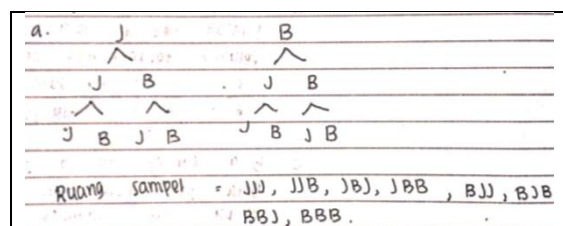 a. J B
J B J B
J B J B J B J B
Ruang sampel = JJJ, JJB, JBJ, JBB, BJJ, BJB
BBJ, BBB.